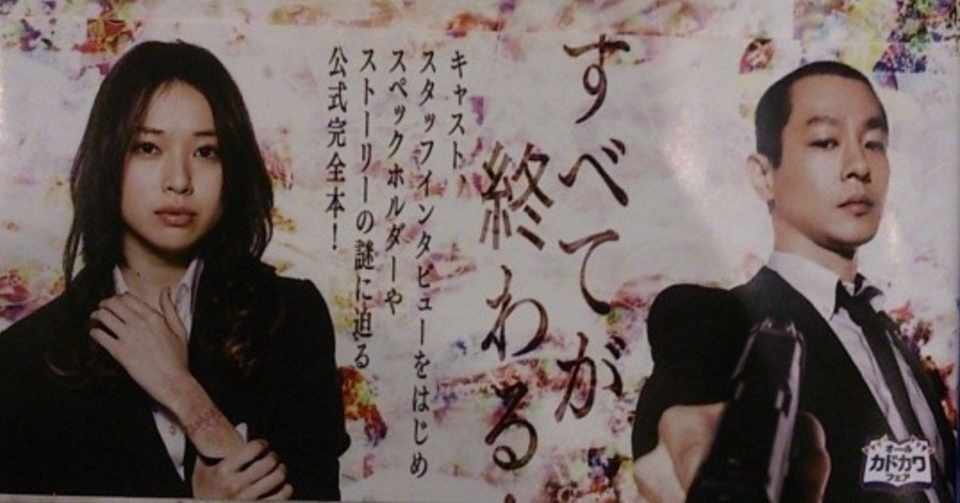 すべてが
終わる
キャスト、
スタッフインタビューをはじめ
スペックホルダーや
ストーリーの謎に迫る
公式完全本！
オール
カドカワ
フェア